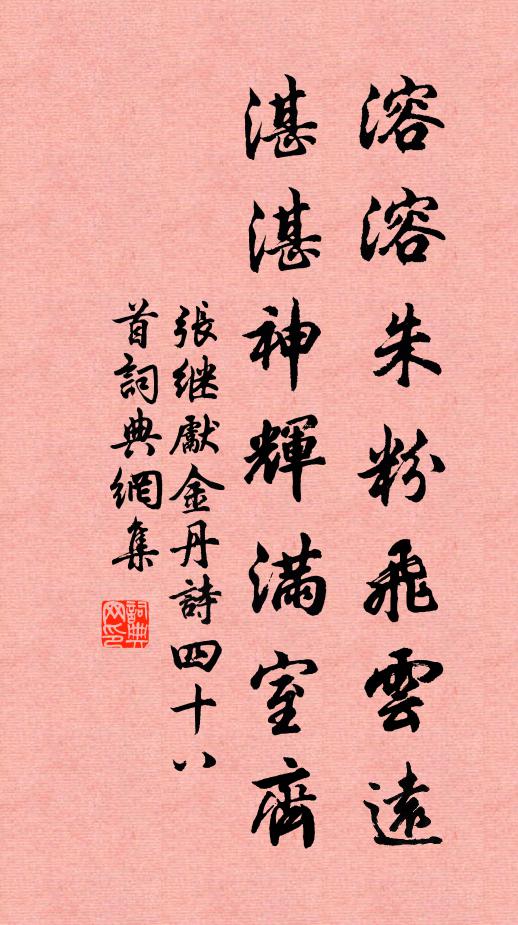 溶溶朱粉飛雲遠
湛湛神輝滿室齊
張继獻金丹詩四十八
首詞典網集
詞典網印